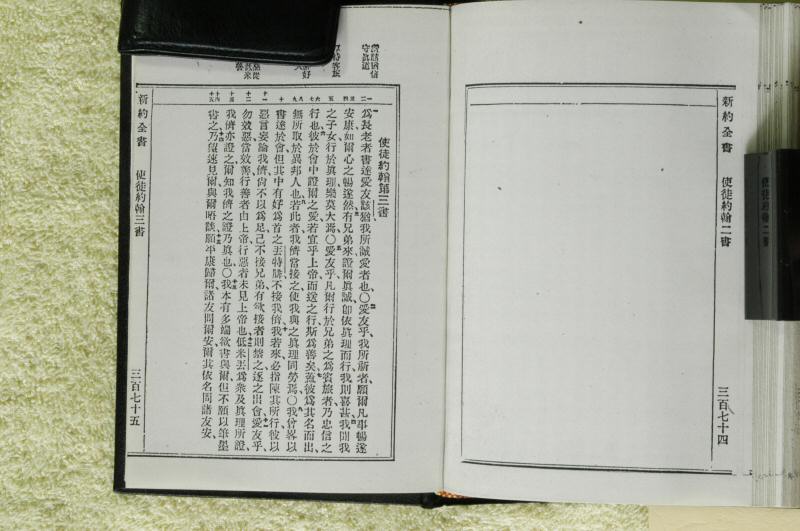 新約全書 使徒約翰二書
三百七十四
使徒約翰二書
使徒約翰第三書
爲長老者書達愛友該猶我所誠愛者也〇愛友乎我所祈者願爾凡事暢遂
安康如爾心之暢遂然有兄弟來證爾眞誠卽依眞理而行我則喜甚我聞我
之子女行於眞理樂莫大焉〇愛友乎凡爾行於兄弟之爲賓旅者乃忠信之
行也彼於會中證爾之愛若宜乎上帝而送之行斯爲善矣蓋彼爲其名而出
無所取於異邦人也若此者我儕當接之使我與之眞理同勞焉〇我曾畧以
書達於會但其中有好爲首之丟特腓不接我儕我若來必指陳其所行彼以
惡言妄論我儕尙不以爲足己不接兄弟有欲接者則禁之逐之出會愛友乎
勿效惡當效善行善者由上帝行惡者未見上帝也低米丟爲衆及眞理所證
我儕亦證之爾知我儕之證乃眞也〇我本有多端欲書與爾但不願以筆墨
書之乃望速見爾與爾晤談願平康歸爾諸友問爾安爾其依名問諸友安
新約全書 使徒約翰三書
三百七十五